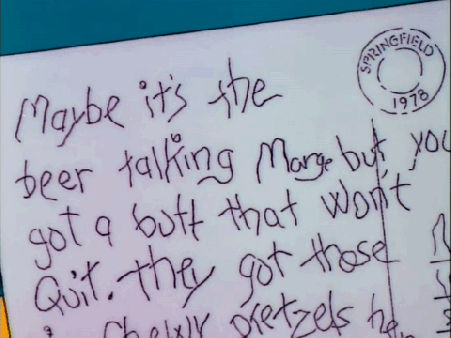 SPRINGFIELD
1978
Maybe it's the
beer talking Marge but you
got a butt that won't
Quit. they got those
chewy pretzels he